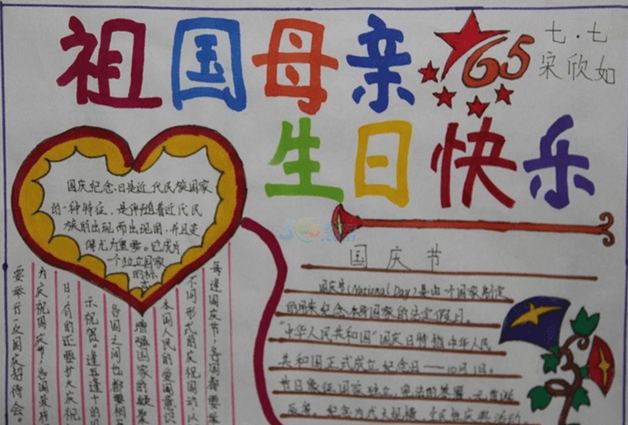 祖国母亲
65
七·七
宋欣如
生日快乐
国庆纪念日是近代民族国家
的一种特征，是伴随着近代民
族国家的出现而出现的，并且变
得尤为重要。它成为
一个独立国家
的标
每逢国庆节，各国都要举
不同形式的庆祝活动，以
本国人民的爱国意识
增强国家的凝聚
各国之间也都要相互
示祝贺。逢五逢十的国
日，有的还要扩大庆祝
为庆祝国庆节，各国政府
要举行一次国庆招待会。
国庆节
国庆节(National Day)是由一个国家制定
的用来纪念本国国家的法定假日。
"中华人民共和国"国庆日特指中华人民
共和国正式成立纪念日——10月1日。
节日象征国家独立、宪法的签署、元首诞